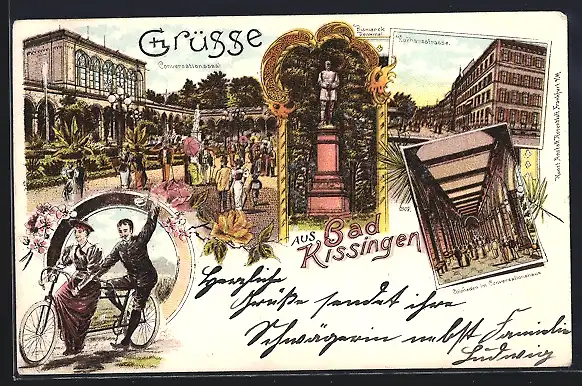 Grüsse
Conversationssaal
Bismarck
Denkmal
Curhausstrasse.
AUS Bad
Kissingen
Arkaden im Conversationshaus
Herzliche
Grüße sendet ihre
Schwägerin nebst Familie
Ludwig